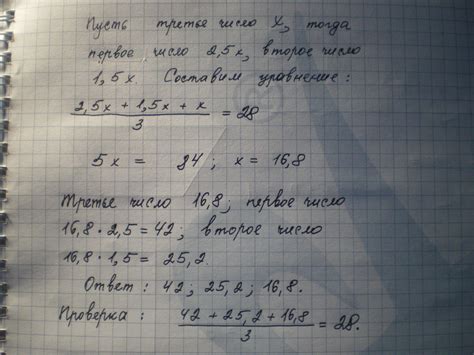 Пусть третье число x, тогда
первое число 2,5x, второе число
1,5x. Составим уравнение:
(2,5x + 1,5x + x)/3 = 28
5x = 84; x = 16,8
Третье число 16,8; первое число
16,8 · 2,5 = 42; второе число
16,8 · 1,5 = 25,2.
Ответ: 42; 25,2; 16,8.
Проверка: (42 + 25,2 + 16,8)/3 = 28.